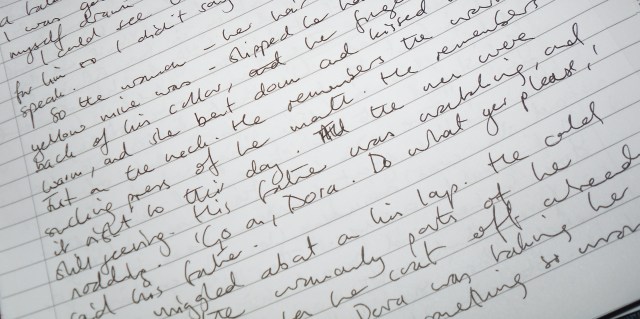 I was
myself down
I could see
for him so I didn't say
speak.
So the woman – her hair
yellow mine was – slipped her
back of his collar, and her
warm, and she bent down and kissed
but on the neck. He remembers the
sucking press of her mouth. He remembers
it right to this day. All the men were
still jeering. His father was watching, and
nodding. 'Go on, Dora. Do what you please,'
said his father.
wriggled about on his lap. He could
the womanly parts of her
her coat off already
Dora was taking her
something so